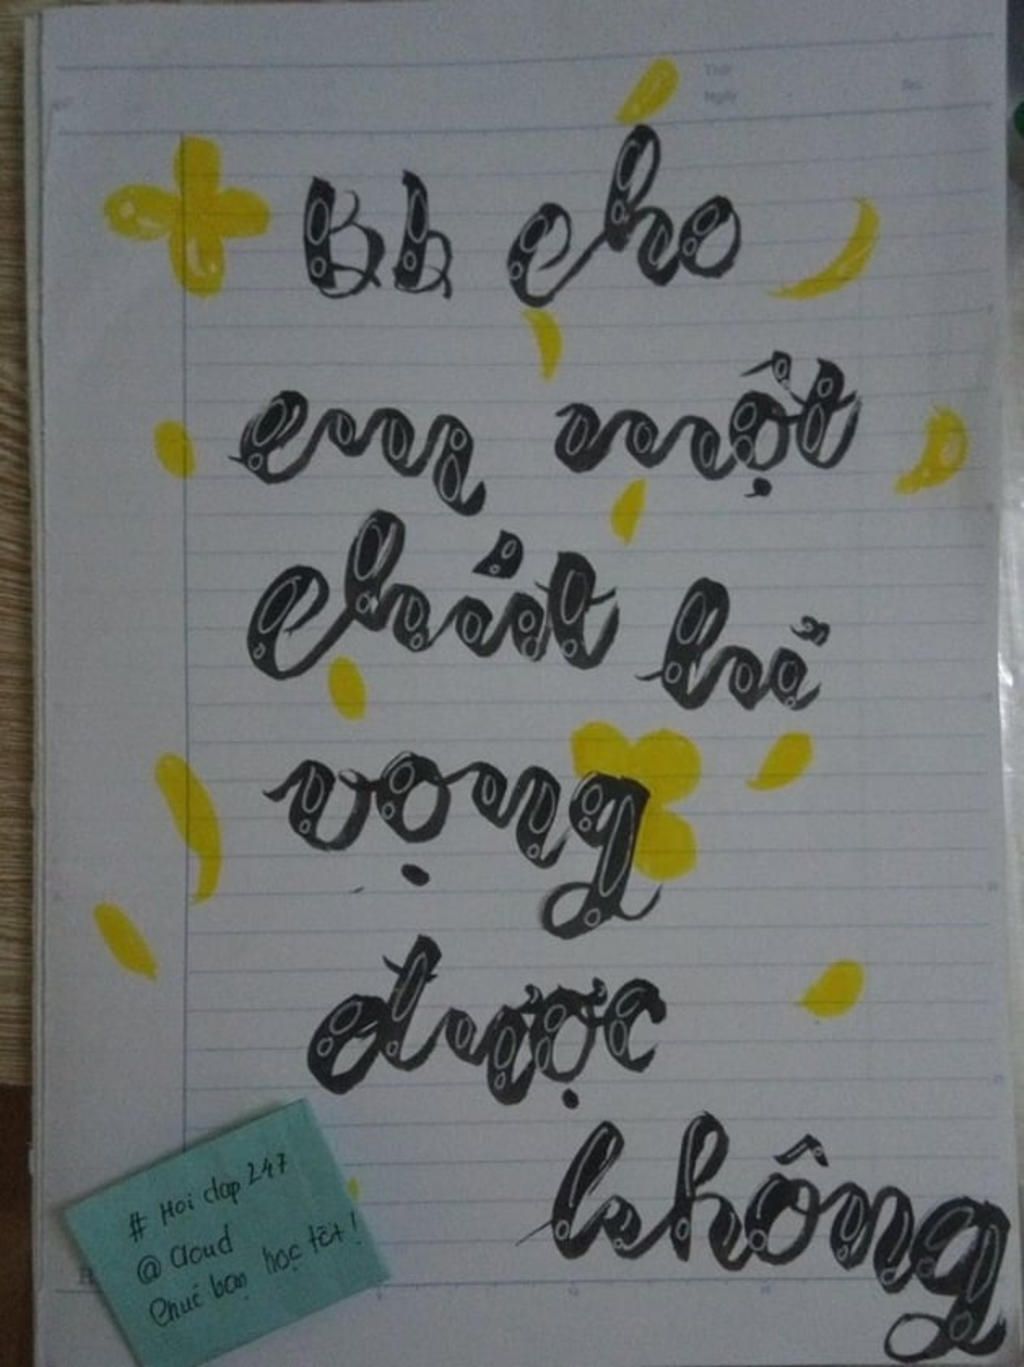 Bb cho
em một
chút hi
vọng
được
không
# Hoi dap 247
@ Cloud
Chúc bạn học tốt!